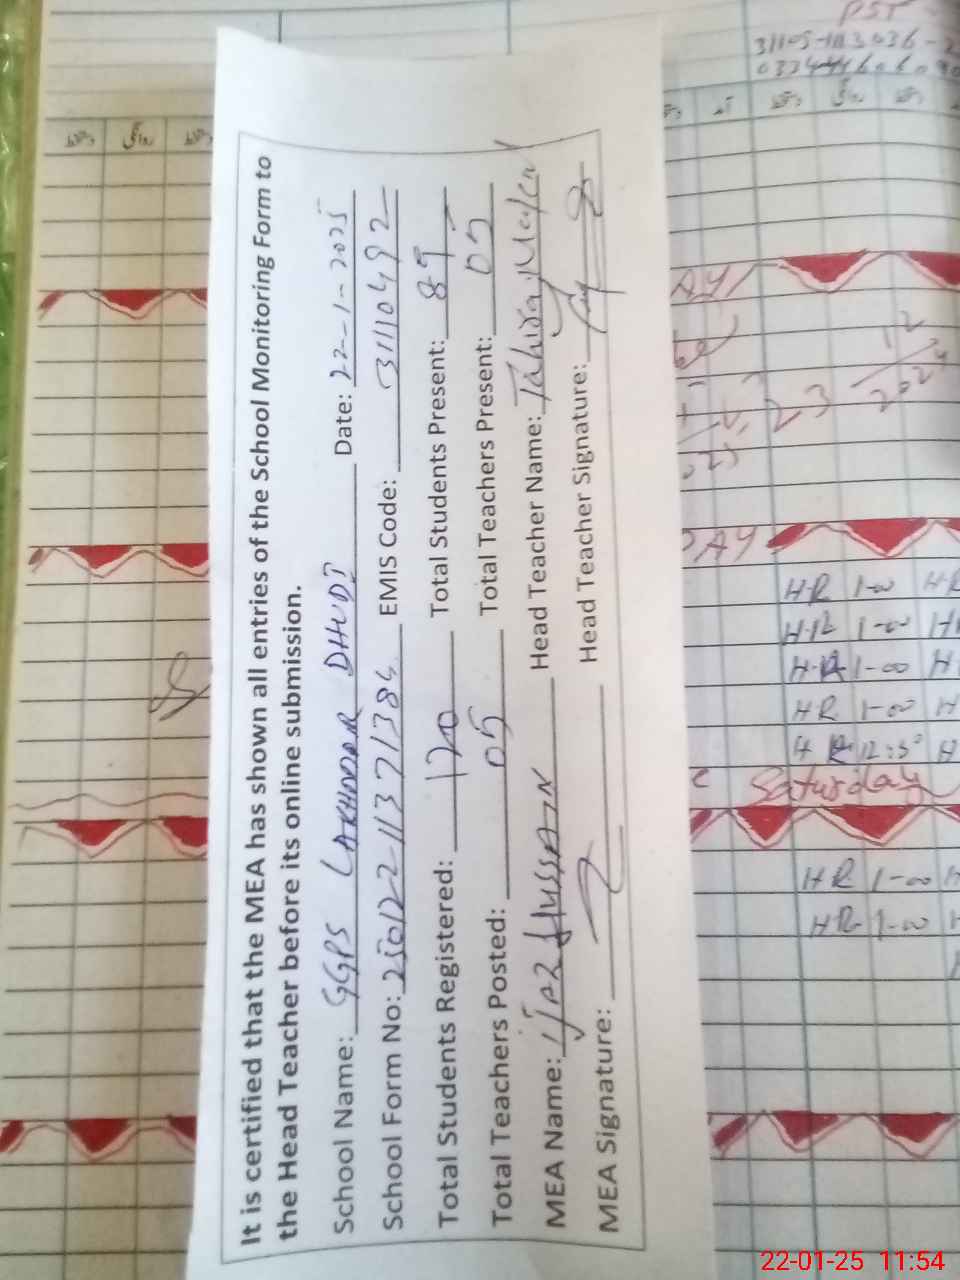 It is certified that the MEA has shown all entries of the School Monitoring Form to
the Head Teacher before its online submission.
School Name: GGPS LAKHODAR DHUDI Date: 22-1-2025
School Form No: 250122113371384 EMIS Code: 31110492
Total Students Registered: 120 Total Students Present: 89
Total Teachers Posted: 05 Total Teachers Present: 05
MEA Name: IJAZ HUSSAIN Head Teacher Name: Tahira
MEA Signature: Head Teacher Signature:
PST
دستخط روانگی دستخط
آمد دستخط روانگی دستخط
AY
12
2024
23
DAY
HR 1-00 HR
HR 1-00 H
HR 1-00 H
HR 1-00 H
HR 12:30 H
Saturday
HR 1-00 H
HR 1-00 H
22-01-25 11:54